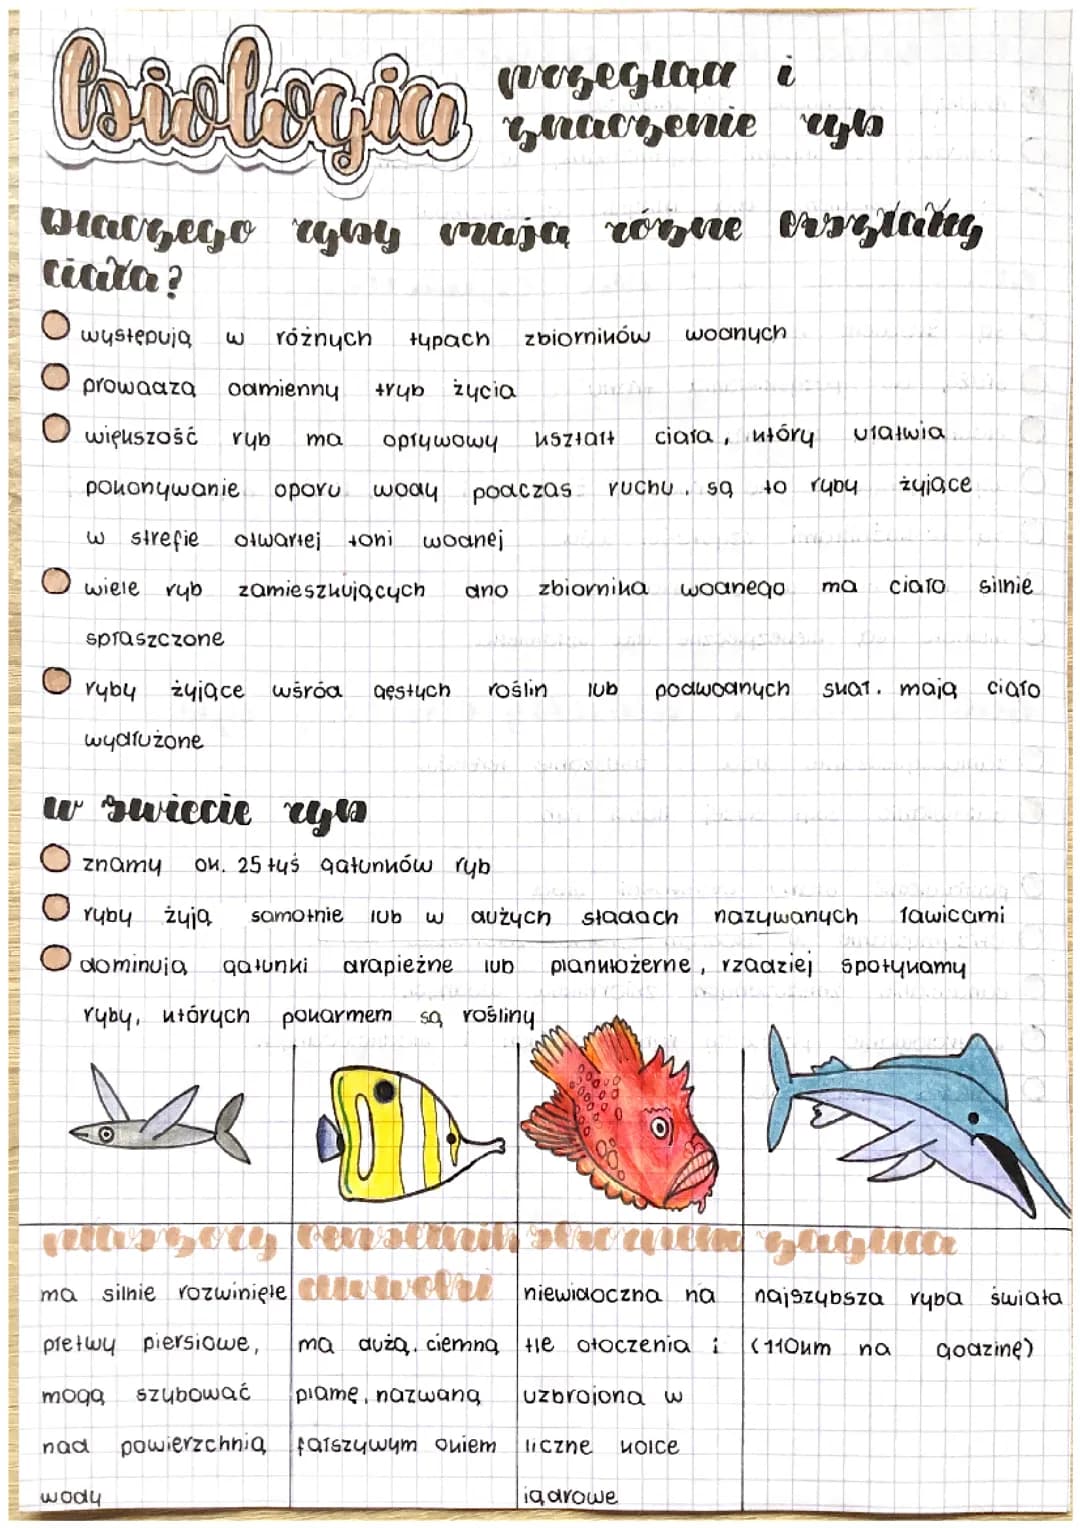 biologia
przegląd i
znaczenie ryb
Dlaczego ryby mają różne kształty
ciała?
występują w różnych typach zbiorników wodnych
prowadzą odmienny tryb życia
większość ryb ma opływowy kształt ciała, który ułatwia
pokonywanie oporu wody podczas ruchu. są to ryby żyjące
w strefie otwartej toni wodnej
wiele ryb zamieszkujących dno zbiornika wodnego ma ciało silnie
spłaszczone
ryby żyjące wśród gęstych roślin lub podwodnych skał. mają ciało
wydłużone
w świecie ryb
znamy ok. 25 tyś gatunków ryb
ryby żyją samotnie lub w dużych stadach nazywanych ławicami
dominują gatunki drapieżne lub planktożerne, rzadziej spotykamy
ryby, których pokarmem są rośliny
ptaszory
ma silnie rozwinięte
płetwy piersiowe,
mogą szybować
nad powierzchnią
wody
pensetnik
duwolki
ma dużą, ciemną
plamę, nazwaną
fałszywym okiem
skorpena
niewidoczna na
tle otoczenia i
uzbrojona w
liczne kolce
jądrowe
żaglica
najszybsza ryba świata
(110km na godzinę)